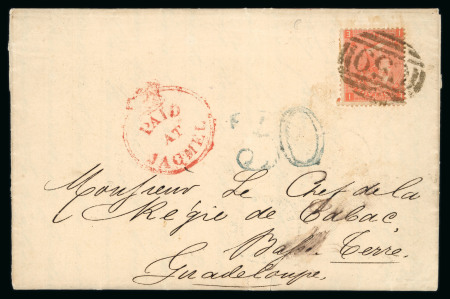 PAID
AT
JACMEL
Monsieur Le Chef de la
Régie de Tabac
Basse-Terre
Guadeloupe.